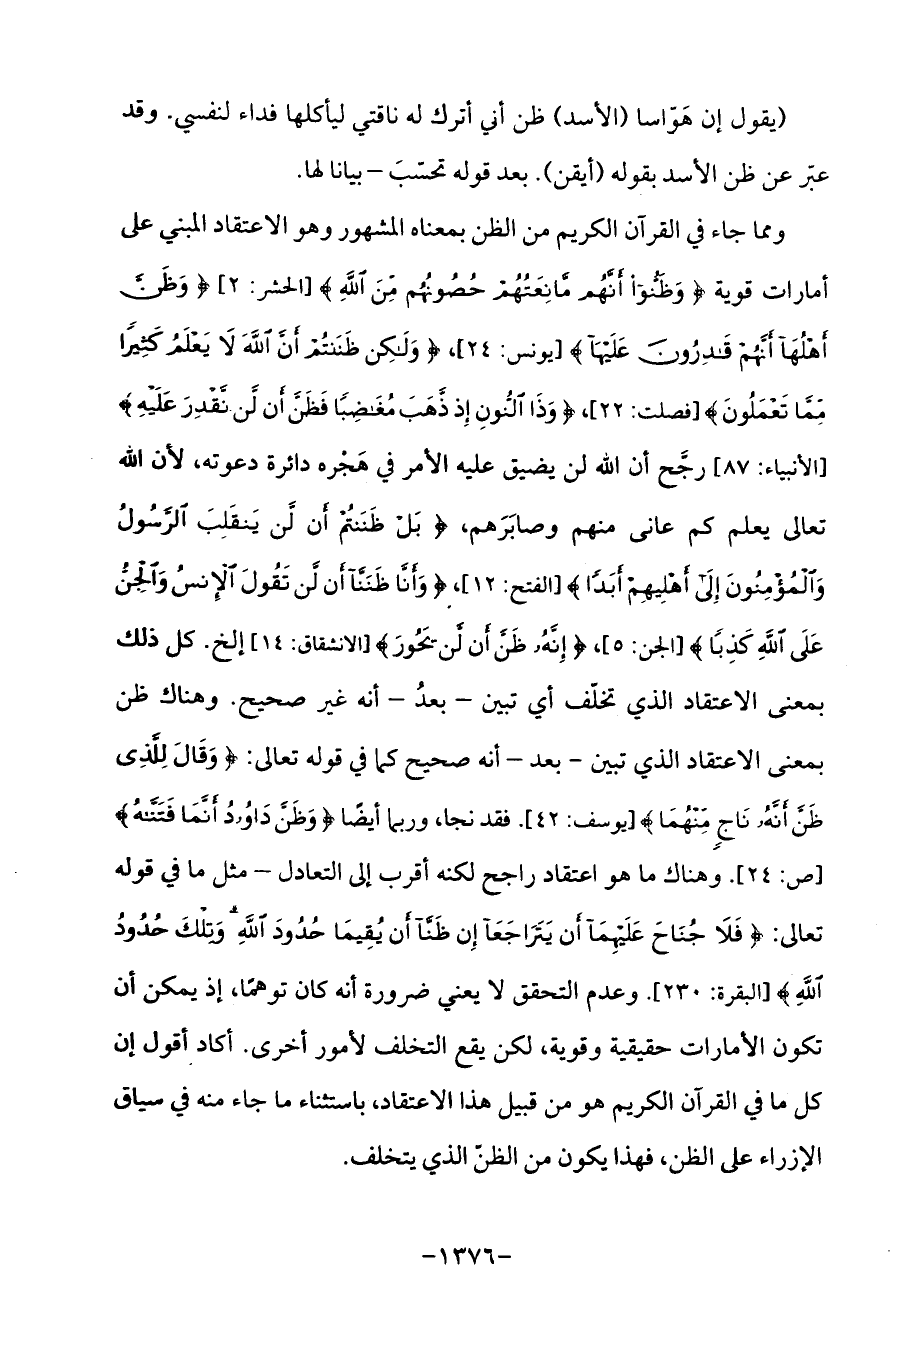 (يقول إن هَوّاسا (الأسد) ظن أني أترك له ناقتي ليأكلها فداء لنفسي. وقد
عبّر عن ظن الأسد بقوله (أيقن). بعد قوله تحسّبَ – بيانا لها.
ومما جاء في القرآن الكريم من الظن بمعناه المشهور وهو الاعتقاد المبني على
أمارات قوية ﴿ وَظَنُّوٓاْ أَنَّهُم مَّانِعَتُهُمْ حُصُونُهُم مِّنَ ٱللَّهِ ﴾ [الحشر: ٢] ﴿ وَظَنَّ
أَهْلُهَآ أَنَّهُمْ قَـٰدِرُونَ عَلَيْهَآ ﴾ [يونس: ٢٤]، ﴿ وَلَـٰكِن ظَنَنتُمْ أَنَّ ٱللَّهَ لَا يَعْلَمُ كَثِيرًا
مِّمَّا تَعْمَلُونَ ﴾ [فصلت: ٢٢]، ﴿ وَذَا ٱلنُّونِ إِذ ذَّهَبَ مُغَـٰضِبًا فَظَنَّ أَن لَّن نَّقْدِرَ عَلَيْهِ ﴾
[الأنبياء: ٨٧] رجَّح أن الله لن يضيق عليه الأمر في هَجْره دائرة دعوته، لأن الله
تعالى يعلم كم عانى منهم وصابَرَهم، ﴿ بَلْ ظَنَنتُمْ أَن لَّن يَنقَلِبَ ٱلرَّسُولُ
وَٱلْمُؤْمِنُونَ إِلَىٰٓ أَهْلِيهِمْ أَبَدًا ﴾ [الفتح: ١٢]، ﴿ وَأَنَّا ظَنَنَّآ أَن لَّن تَقُولَ ٱلْإِنسُ وَٱلْجِنُّ
عَلَى ٱللَّهِ كَذِبًا ﴾ [الجن: ٥]، ﴿ إِنَّهُۥ ظَنَّ أَن لَّن يَحُورَ ﴾ [الانشقاق: ١٤] إلخ. كل ذلك
بمعنى الاعتقاد الذي تخلّف أي تبين – بعدُ – أنه غير صحيح. وهناك ظن
بمعنى الاعتقاد الذي تبين – بعد – أنه صحيح كما في قوله تعالى: ﴿ وَقَالَ لِلَّذِى
ظَنَّ أَنَّهُۥ نَاجٍ مِّنْهُمَا ﴾ [يوسف: ٤٢]. فقد نجا، وربما أيضًا ﴿ وَظَنَّ دَاوُۥدُ أَنَّمَا فَتَنَّـٰهُ ﴾
[ص: ٢٤]. وهناك ما هو اعتقاد راجح لكنه أقرب إلى التعادل – مثل ما في قوله
تعالى: ﴿ فَلَا جُنَاحَ عَلَيْهِمَآ أَن يَتَرَاجَعَآ إِن ظَنَّآ أَن يُقِيمَا حُدُودَ ٱللَّهِ ۗ وَتِلْكَ حُدُودُ
ٱللَّهِ ﴾ [البقرة: ٢٣٠]. وعدم التحقق لا يعني ضرورة أنه كان توهمًا، إذ يمكن أن
تكون الأمارات حقيقية وقوية، لكن يقع التخلف لأمور أخرى. أكاد أقول إن
كل ما في القرآن الكريم هو من قبيل هذا الاعتقاد، باستثناء ما جاء منه في سياق
الإزراء على الظن، فهذا يكون من الظنّ الذي يتخلف.
-١٣٧٦-